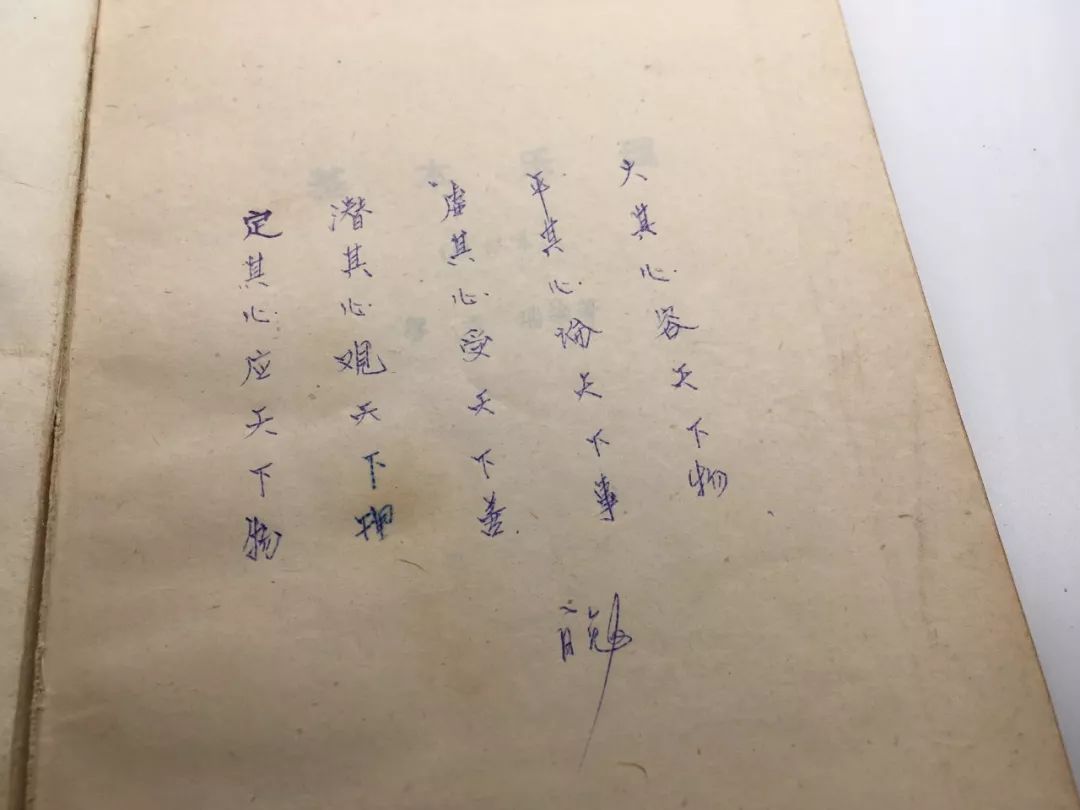 大其心容天下物
平其心論天下事
虚其心受天下善
潜其心观天下理
定其心应天下